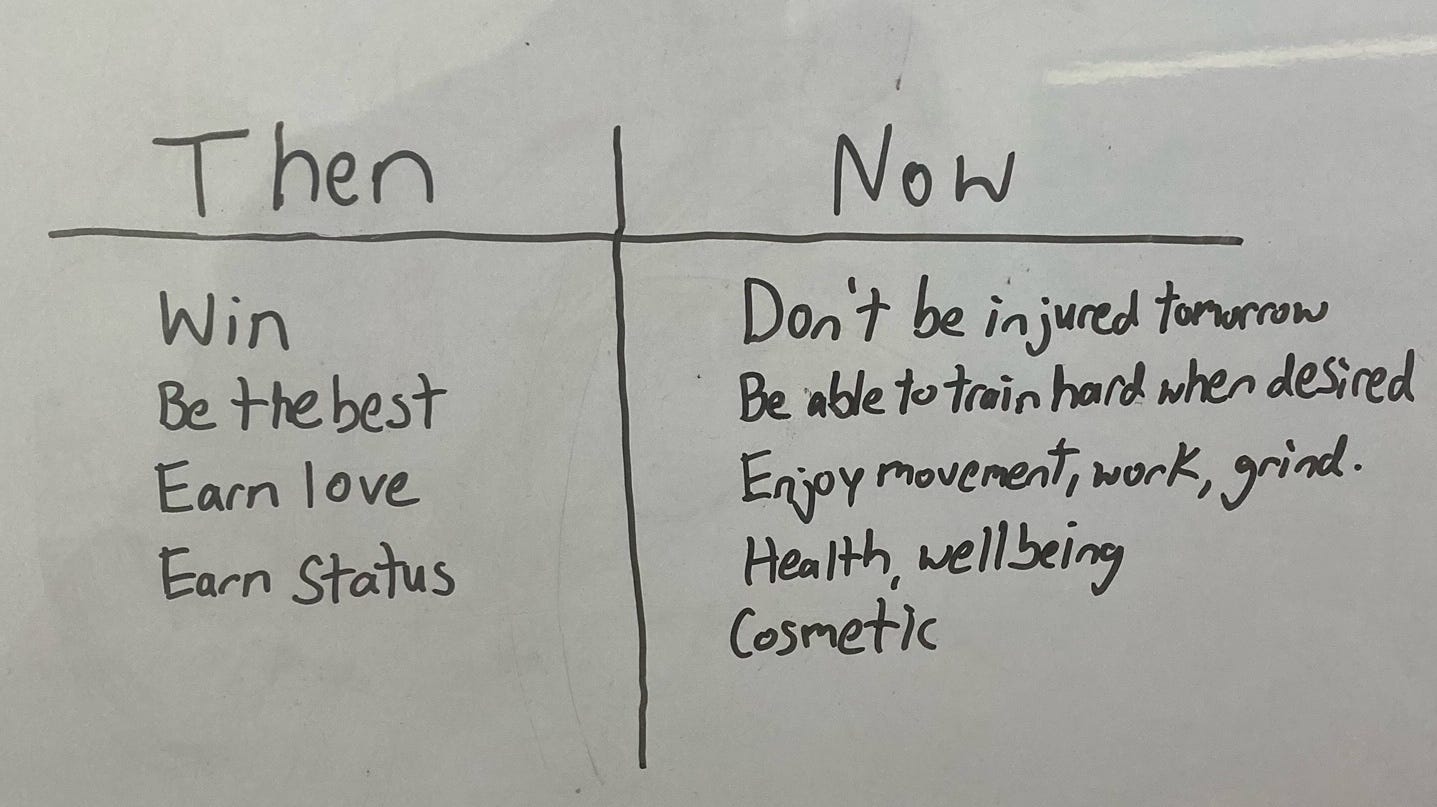 Then | Now
Win | Don't be injured tomorrow
Be the best | Be able to train hard when desired
Earn love | Enjoy movement, work, grind.
Earn Status | Health, wellbeing
Cosmetic